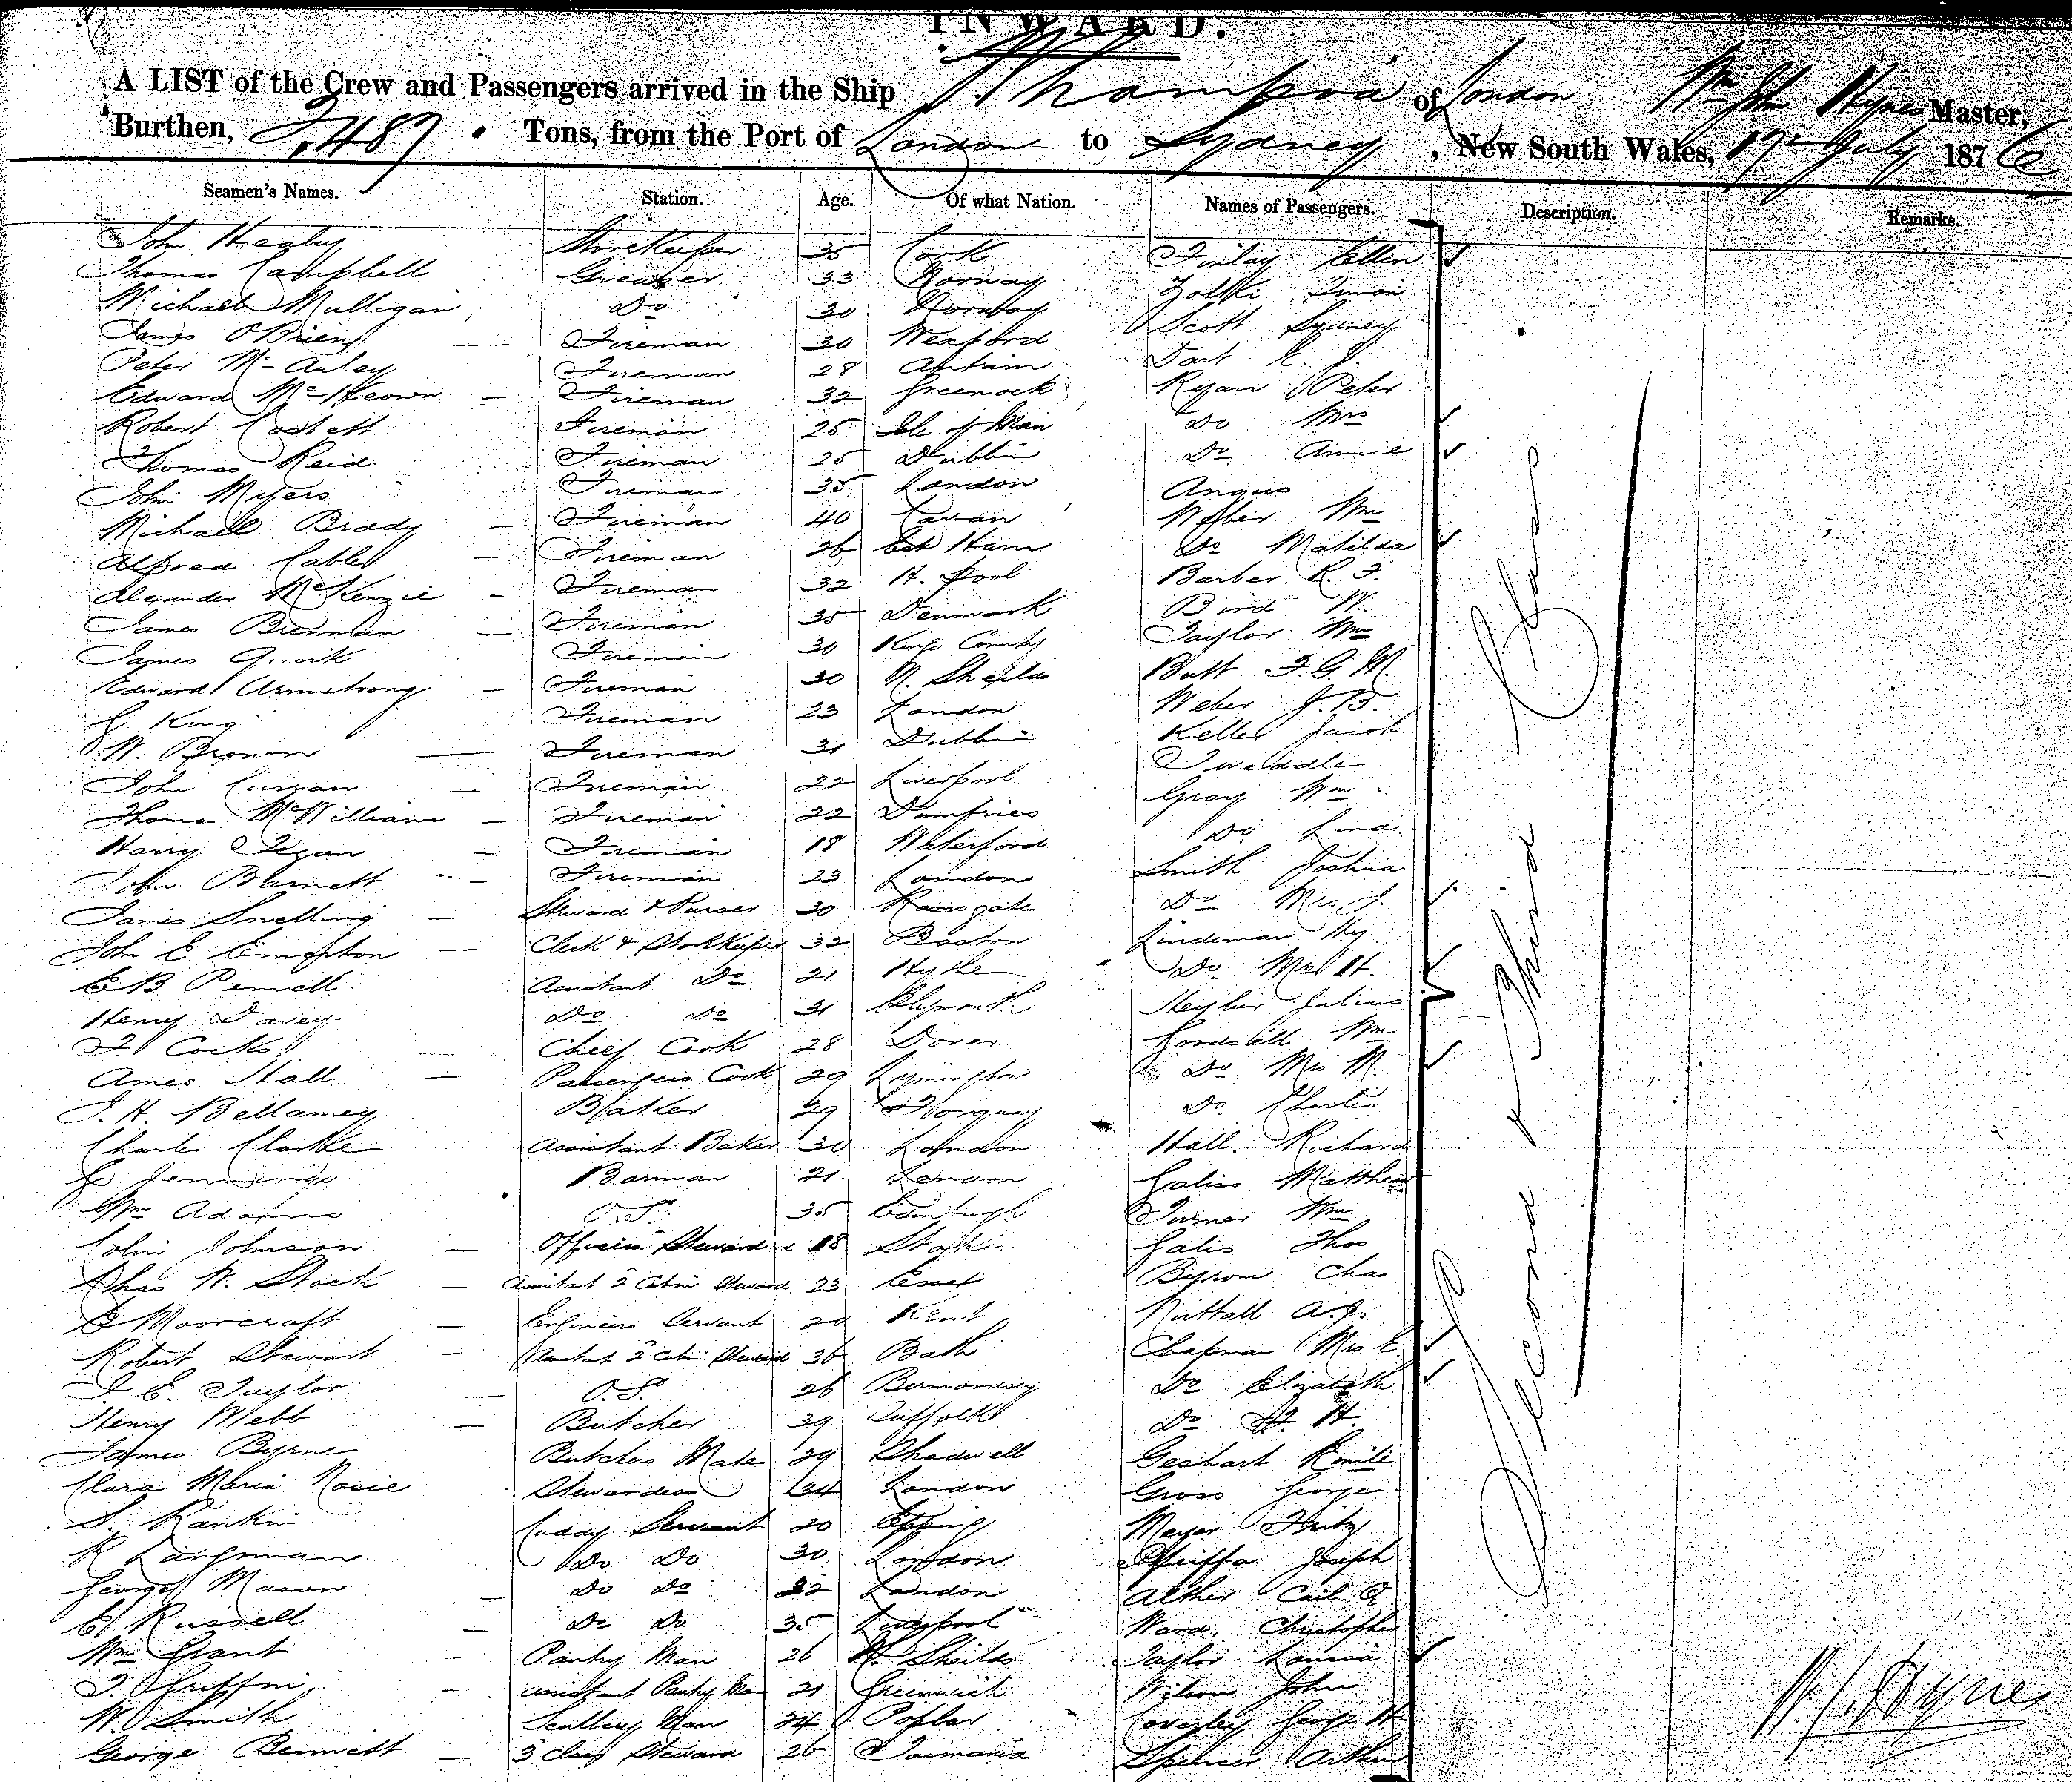 INWARD.
A LIST of the Crew and Passengers arrived in the Ship Whampoa of London Wm John Hynes Master,
Burthen, Tons, from the Port of London to Sydney, New South Wales, 17th July 1876
Seamen's Names. Station. Age. Of what Nation. Names of Passengers. Description. Remarks.
John Storekeeper 35 Cork Finlay Ellen
Thomas Campbell Greaser 33 Norway
Michael Mulligan Do 30
James OBrien Fireman 30 Wexford Scott Sydney
Peter McAuley Fireman 28 Antrim
Edward McKeown Fireman 32 Greenock Ryan Peter
Robert Fireman 25 Isle of Man Do Mrs
Thomas Reid Fireman 25 Dublin Do Annie
John Myers Fireman 35 London Angus
Michael Brady Fireman 40 Cavan Weber Wm
Alfred Cable Fireman 26 Ham Do Matilda
Alexander McKenzie Fireman 32 H. Pool Barber R. F.
James Brennan Fireman 35 Denmark Bird W.
James Quirk Fireman 30 Kings County Taylor Wm
Edward Armstrong Fireman 30 N. Sheilds Butt F. G. M.
King Fireman 23 London Weber J. B.
W. Brown Fireman 31 Dublin Keller Jacob
John Curran Fireman 22 Liverpool Tweddle
Thomas McWilliam Fireman 22 Dumfries Gray Wm
Harry Egan Fireman 18 Waterford Do
John Barnett Fireman 23 London Smith Joshua
James Snelling Steward & Purser 30 Ramsgate Do Mrs J.
John E Clerk & Storekeeper 32 Boston Lindeman Hy
E B Assistant Do 21 Hythe Do Mrs H.
Henry Davey Do Do 31 Plymouth Julius
Cocks Chief Cook 28 Dover Wm
Ames Hall Passengers Cook 29 Lymington Do Mrs W.
J. H. Bellamey Baker 29 Torquay Do Charles
Charles Clarke Assistant Baker 30 London Hall. Richard
Jennings Barman 21 London Matthew
Wm Adams O.S. 35 Edinburgh Turner Wm
Colin Johnson Officers Steward 18 Thos
Chas W. Stock Assistant 2 Cabin Steward 23 Essex Byrom Chas
E Moorcraft Engineers Servant 20 Kent Nuttall A. J.
Robert Stewart Assistant 2 Cabin Steward 36 Bath Chapman Mrs E.
J E. Taylor O.S. 26 Bermondsey Do Elizabeth
Henry Webb Butcher 39 Suffolk Do H.
James Byrne Butchers Mate 29 Shadwell Emile
Clara Maria Rosie Stewardess 34 London Gross George
S. Rankin Cuddy Servant 20 Epping Meyer Fritz
R Langman Do Do 30 London Joseph
George Mason Do Do 22 London Alther Carl
E Russell Do Do 35 Liverpool Ward. Christopher
Wm Grant Pantry Man 26 N. Sheilds Taylor Louisa
J. Griffin Assistant Pantry Man 21 Greenwich Wilson John
W. Smith Scullery Man 24 Poplar Coverley George H
George Bennett 3 Class Steward 26 Tasmania Spencer Arthur
Second & Third Class
W J Hynes